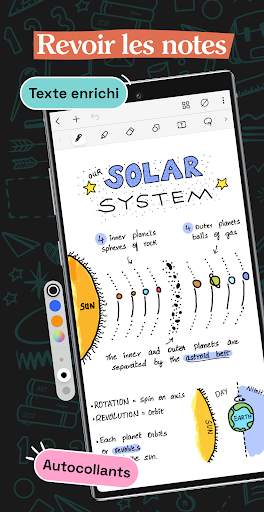 Revoir les notes
Texte enrichi
OUR
SOLAR
SYSTEM
4 Inner planets
spheres of rock
4 Outer planets
balls of gas
SUN
The inner and outer planets are
separated by the astroid belt
•ROTATION = spin on axis
•REVOLUTION = Orbit
• Each planet Orbits
or revolves
the sun.
SUN
DAY
NIGHT
EARTH
Autocollants